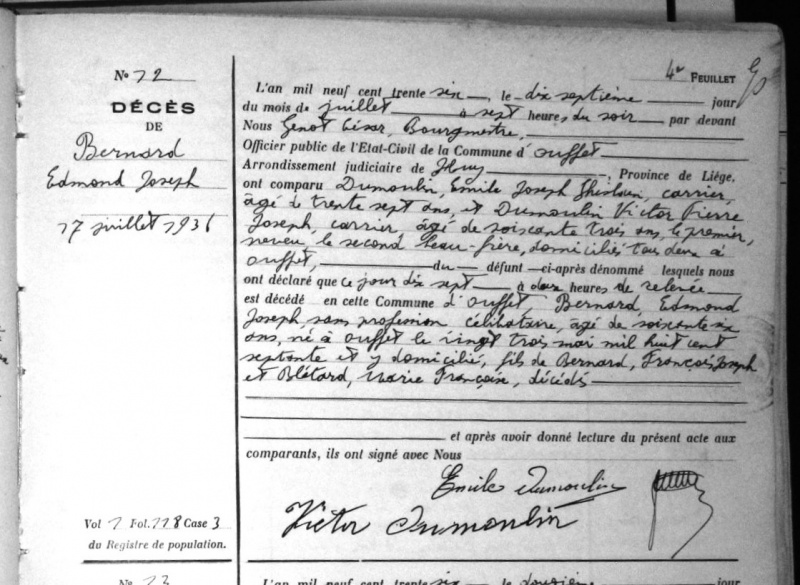 4e FEUILLET
No 12
DÉCÈS
DE
Bernard
Edmond Joseph
17 juillet 1936
L'an mil neuf cent trente six, le dix septième jour
du mois de juillet à sept heures du soir, par devant
Nous Genot César, Bourgmestre,
Officier public de l'Etat-Civil de la Commune d'Ouffet
Arrondissement judiciaire de Huy, Province de Liége,
ont comparu Dumoulin, Emile Joseph Ghislain, carrier,
âgé de trente sept ans, et Dumoulin Victor Pierre
Joseph, carrier, âgé de soixante trois ans, le premier,
neveu, le second beau-frère, domiciliés tous deux à
Ouffet, du défunt ci-après dénommé lesquels nous
ont déclaré que ce jour dix sept à deux heures de relevée
est décédé en cette Commune d'Ouffet Bernard, Edmond
Joseph, sans profession célibataire, âgé de soixante six
ans, né à Ouffet le vingt trois mai mil huit cent
septante et y domicilié, fils de Bernard, François Joseph
et Blétard, Marie Françoise, décédés
et après avoir donné lecture du présent acte aux
comparants, ils ont signé avec Nous
Emile Dumoulin
Victor Dumoulin
Vol 1 Fol. 118 Case 3
du Registre de population.
No 13
L'an mil neuf cent trente six, le douzième jour